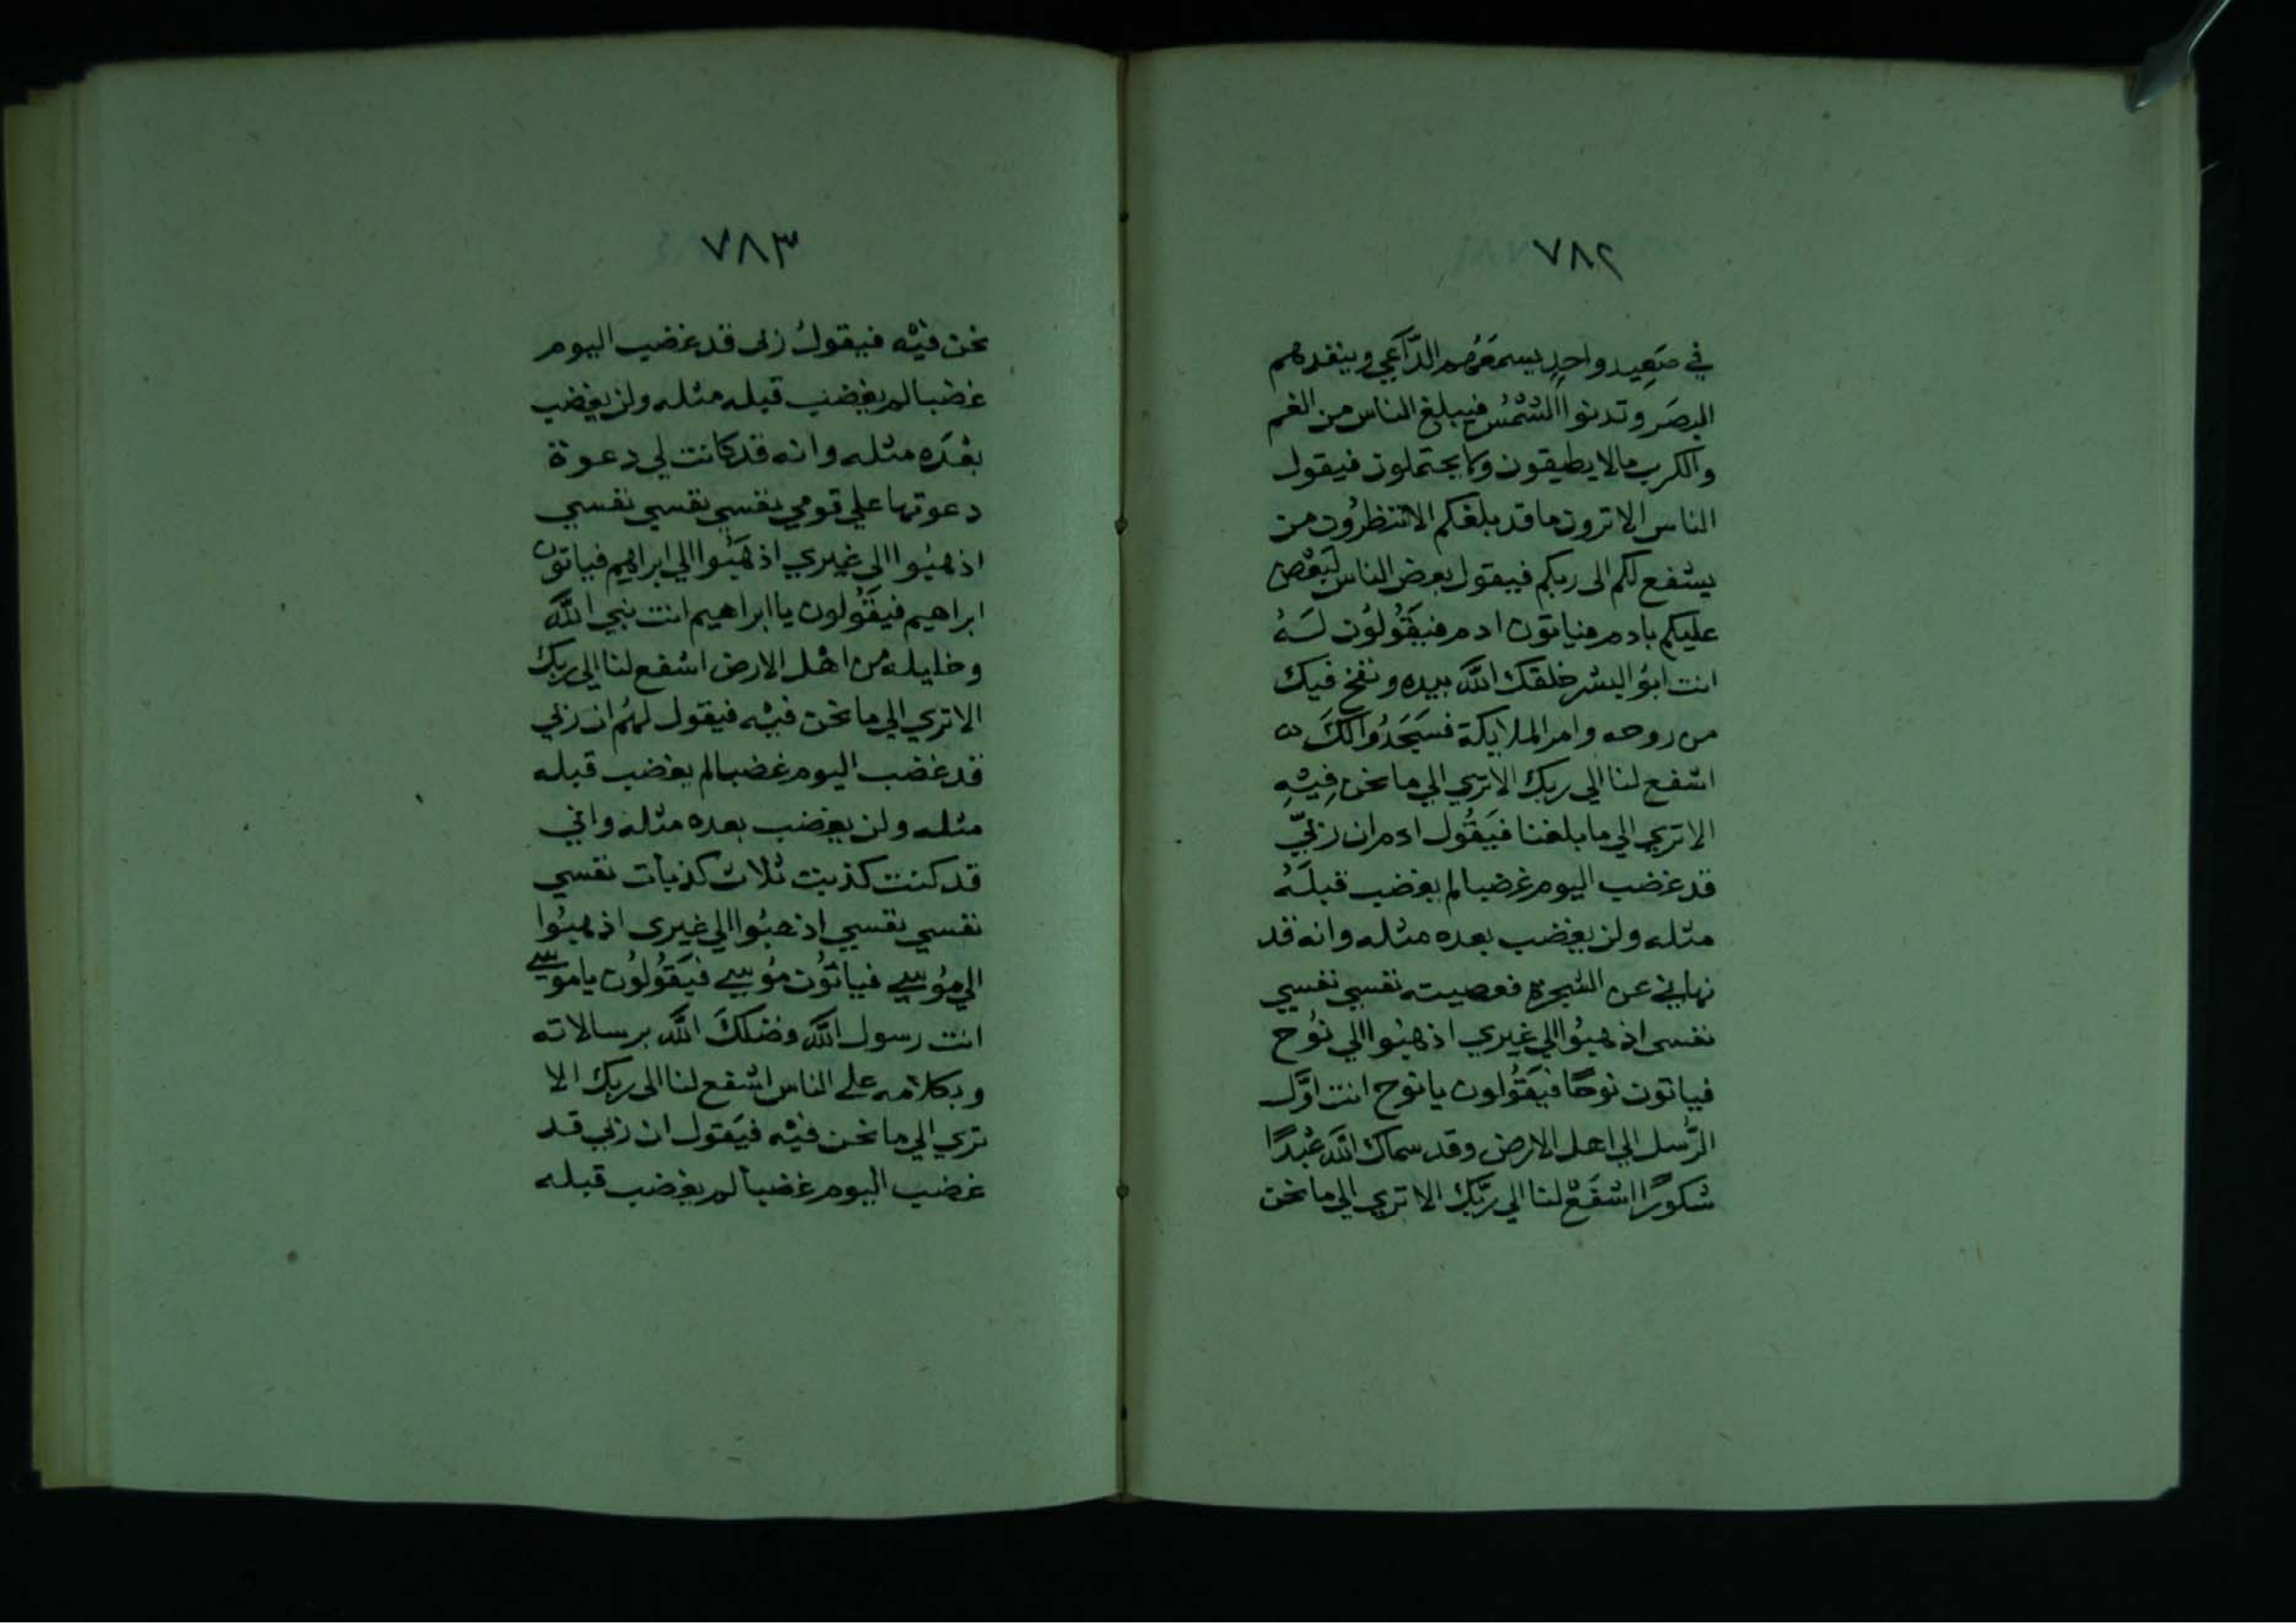 ٧٨٢
في صَعِيد واحدٍ يسمعَهُم الدَّاعي وينفدهم
البصَر وتدنوا الشمْسُ فيبلغ الناس من الغم
والكرب مالا يطيقون ولا يحتملون فيقول
الناس الا ترون ما قد بلغكم الا تنظرُون من
يشفع لكم الى ربكم فيقول بعض الناس لبَعْض
عليكم بادم فياتون ادم فيقَُولُون لَهُ
انت ابوُ البشر خلقك الله بيده ونفخ فيك
من روحه وامر الملايكة فسَجَدُوا لكَ
اشفع لنا الي ربك الا تري الي ما نحن فِيْهِ
الا تري الي ما بلغنا فيَقُول ادم ان ربيّ
قد غضب اليوم غضبا لم يغضب قبلَهُ
مثله ولن يغضب بعده مثله وانه قد
نهاني عن الشجرة فعصيته نفسي نفسي
نفسي اذهبُوا الي غيري اذهبُوا الي نوُح
فياتون نوحًا فيَقُولون يا نوح انت اوَّل
الرُّسل الي اهل الارض وقد سماك الله عَبْدًا
شكورًا اشفَعْ لنا الي ربَّك الا تري الي ما نحن
٧٨٣
نحن فيْه فيقولُ ربي قد غضب اليوم
غضبا لم يغضب قبله مثله ولن يغضب
بعْدَه مثله وانه قد كانت لي دعوة
دعوتها علي قومي نفسي نفسي نفسي
اذهبُوا الي غيري اذهَبُوا الي ابراهيم فياتون
ابراهيم فيقَُولون يا ابراهيم انت نبي الله
وخليله من اهْل الارض اشفع لنا الي ربك
الا تري الي ما نحن فيْه فيقول لهُم ان ربي
قد غضب اليوم غضبا لم يغضب قبله
مثله ولن يغضب بعده مثله واني
قد كنت كذبت ثلاث كذبات نفسي
نفسي نفسي اذهبُوا الي غيري اذهبُوا
الي موُسي فياتوُن موُسي فيَقوُلوُن يا موسي
انت رسول الله فضلكَ الله برسالاته
وبكلامه علي الناس اشفع لنا الي ربك الا
تري الي ما نحن فيْه فيَقول ان ربي قد
غضب اليوم غضبا لم يغضب قبله